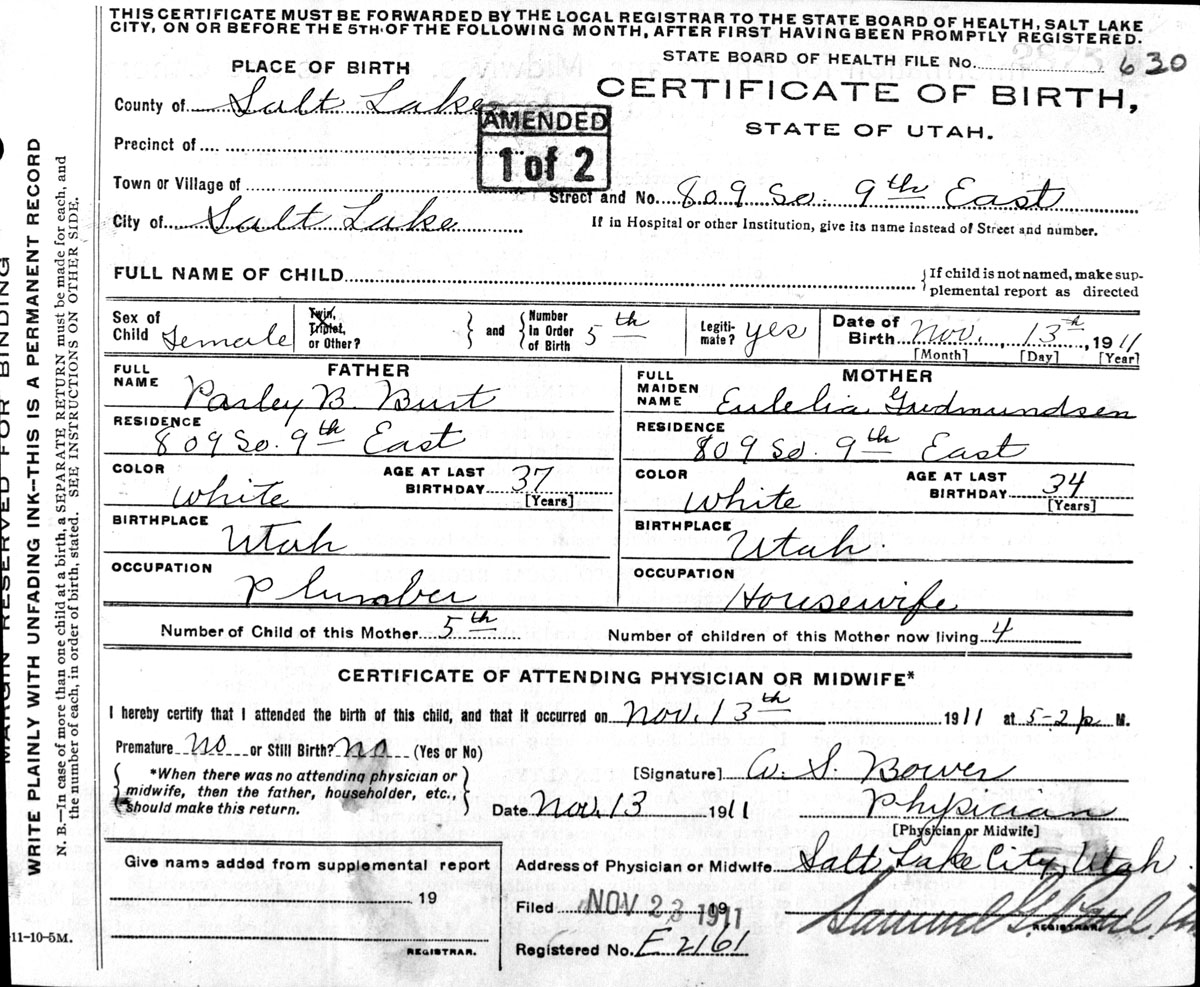 THIS CERTIFICATE MUST BE FORWARDED BY THE LOCAL REGISTRAR TO THE STATE BOARD OF HEALTH, SALT LAKE
CITY, ON OR BEFORE THE 5TH OF THE FOLLOWING MONTH, AFTER FIRST HAVING BEEN PROMPTLY REGISTERED.
STATE BOARD OF HEALTH FILE No. 630
PLACE OF BIRTH
CERTIFICATE OF BIRTH,
STATE OF UTAH.
County of Salt Lake
AMENDED
1 of 2
Precinct of
Town or Village of
Street and No. 809 So. 9th East
City of Salt Lake
If in Hospital or other Institution, give its name instead of Street and number.
FULL NAME OF CHILD
{If child is not named, make sup-
plemental report as directed
Sex of Child Female
Twin, Triplet, or Other?
} and {Number In Order of Birth 5th
Legiti-mate? yes
Date of Birth Nov. 13th, 1911
[Month] [Day] [Year]
FATHER
FULL NAME Parley B. Burt
RESIDENCE 809 So. 9th East
COLOR White
AGE AT LAST BIRTHDAY 37 [Years]
BIRTHPLACE Utah
OCCUPATION Plumber
MOTHER
FULL MAIDEN NAME Eulelia Gudmundsen
RESIDENCE 809 So. 9th East
COLOR White
AGE AT LAST BIRTHDAY 34 [Years]
BIRTHPLACE Utah.
OCCUPATION Housewife
Number of Child of this Mother 5th
Number of children of this Mother now living 4
CERTIFICATE OF ATTENDING PHYSICIAN OR MIDWIFE*
I hereby certify that I attended the birth of this child, and that it occurred on Nov. 13th 1911 at 5-2 p M.
Premature No or Still Birth? No (Yes or No)
{*When there was no attending physician or
midwife, then the father, householder, etc.,
should make this return.}
[Signature] W. S. Bower
Date Nov. 13 1911
Physician
[Physician or Midwife]
Give name added from supplemental report
19
REGISTRAR.
Address of Physician or Midwife Salt Lake City, Utah.
Filed NOV 23 1911 191
Registered No. E2161
REGISTRAR.
11-10-5M.
MARGIN RESERVED FOR BINDING
WRITE PLAINLY WITH UNFADING INK--THIS IS A PERMANENT RECORD
N. B.--In case of more than one child at a birth, a SEPARATE RETURN must be made for each, and
the number of each, in order of birth, stated. SEE INSTRUCTIONS ON OTHER SIDE.